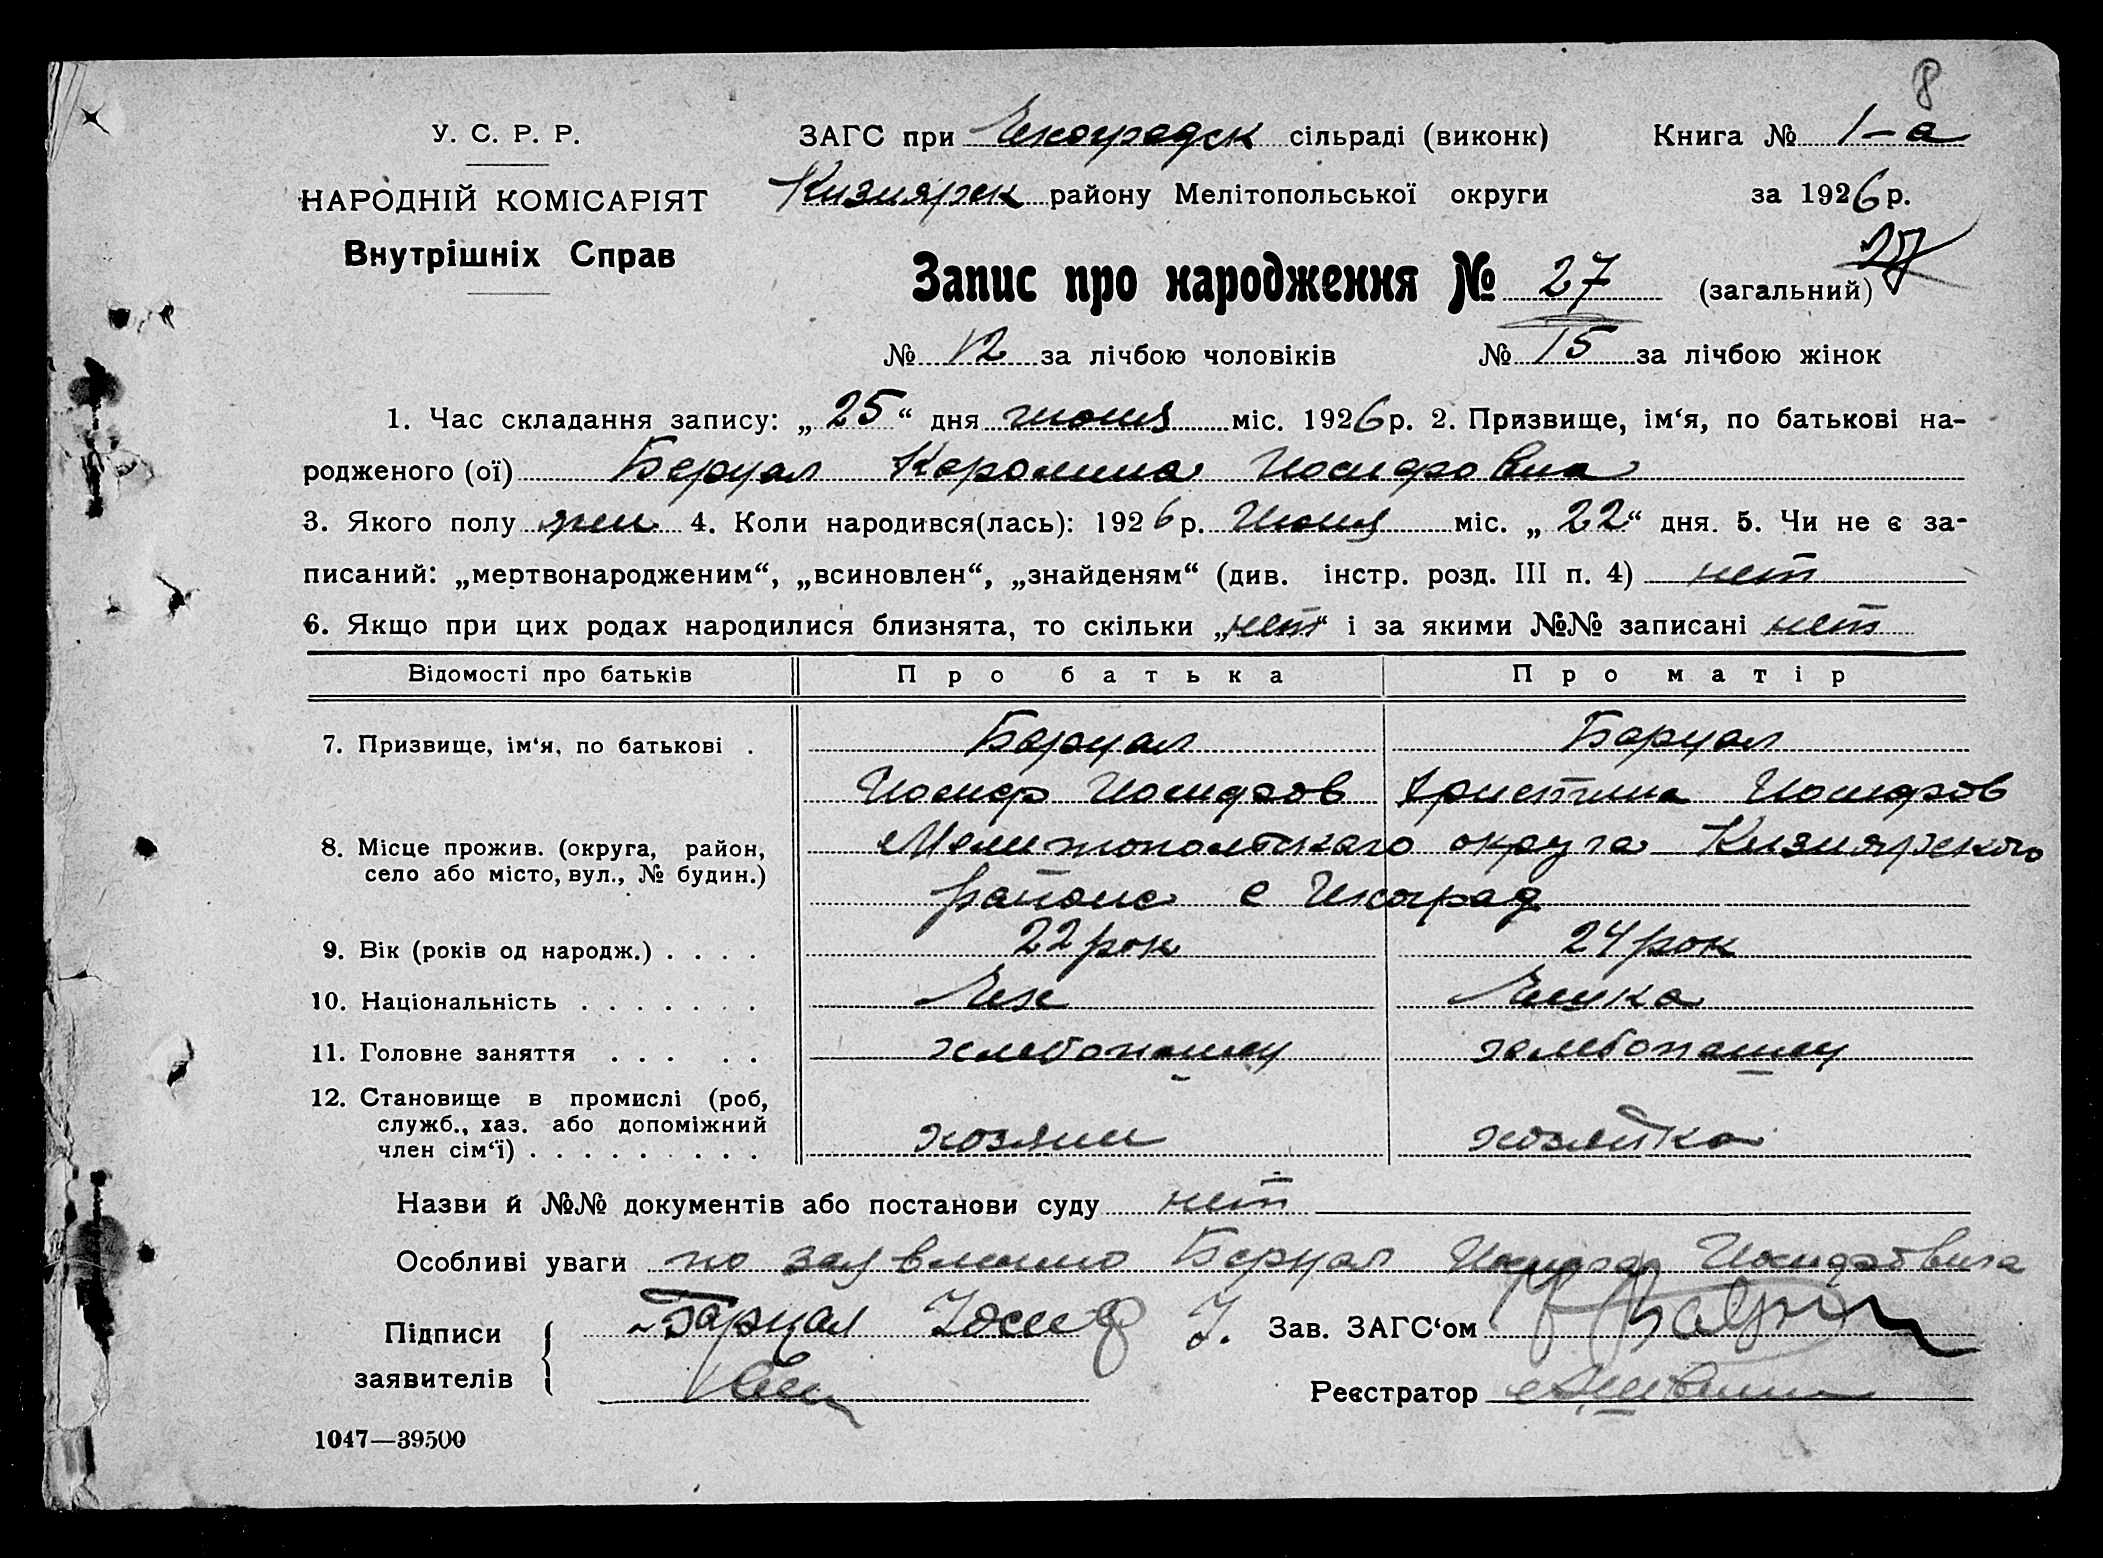 8
У. С. Р. Р.
ЗАГС при Чехоградск сільраді (виконк)
Книга № 1-а
НАРОДНІЙ КОМІСАРІЯТ
Кизиярск району Мелітопольської округи
за 1926 р.
Внутрішніх Справ
Запис про народження № 27 (загальний)
№ 12 за лічбою чоловіків № 15 за лічбою жінок
1. Час складання запису: „25“ дня июня міс. 1926 р. 2. Призвище, ім‘я, по батькові на-
родженого (ої) Барцал Каролина Иосифовна
3. Якого полу жен 4. Коли народився(лась): 1926 р. Июня міс. „22“ дня. 5. Чи не є за-
писаний: „мертвонародженим“, „всиновлен“, „знайденям“ (див. інстр. розд. III п. 4) нет
6. Якщо при цих родах народилися близнята, то скільки „нет“ і за якими №№ записані нет
Відомості про батьків Про батька Про матір
7. Призвище, ім‘я, по батькові . Барцал Барцал
Иосиф Иосифов Христина Иосифов
8. Місце прожив. (округа, район, село або місто, вул., № будин.) Мелитопольского округа Кизиярского
района с Чехоград
9. Вік (років од народж.) . . . . 22 рок 24 рок
10. Національність . . . . . . . Чех Чешка
11. Головне заняття . . . . . хлебопашец хлебопашец
12. Становище в промислі (роб,
служб., хаз. або допоміжний
член сім‘ї) . . . . . . . . . хозяин хозяйка
Назви й №№ документів або постанови суду нет
Особливі уваги по заявлению Барцал Иосифа Иосифовича
Підписи заявителів Барцал Иосиф И. Зав. ЗАГС‘ом
Реєстратор
1047—39500